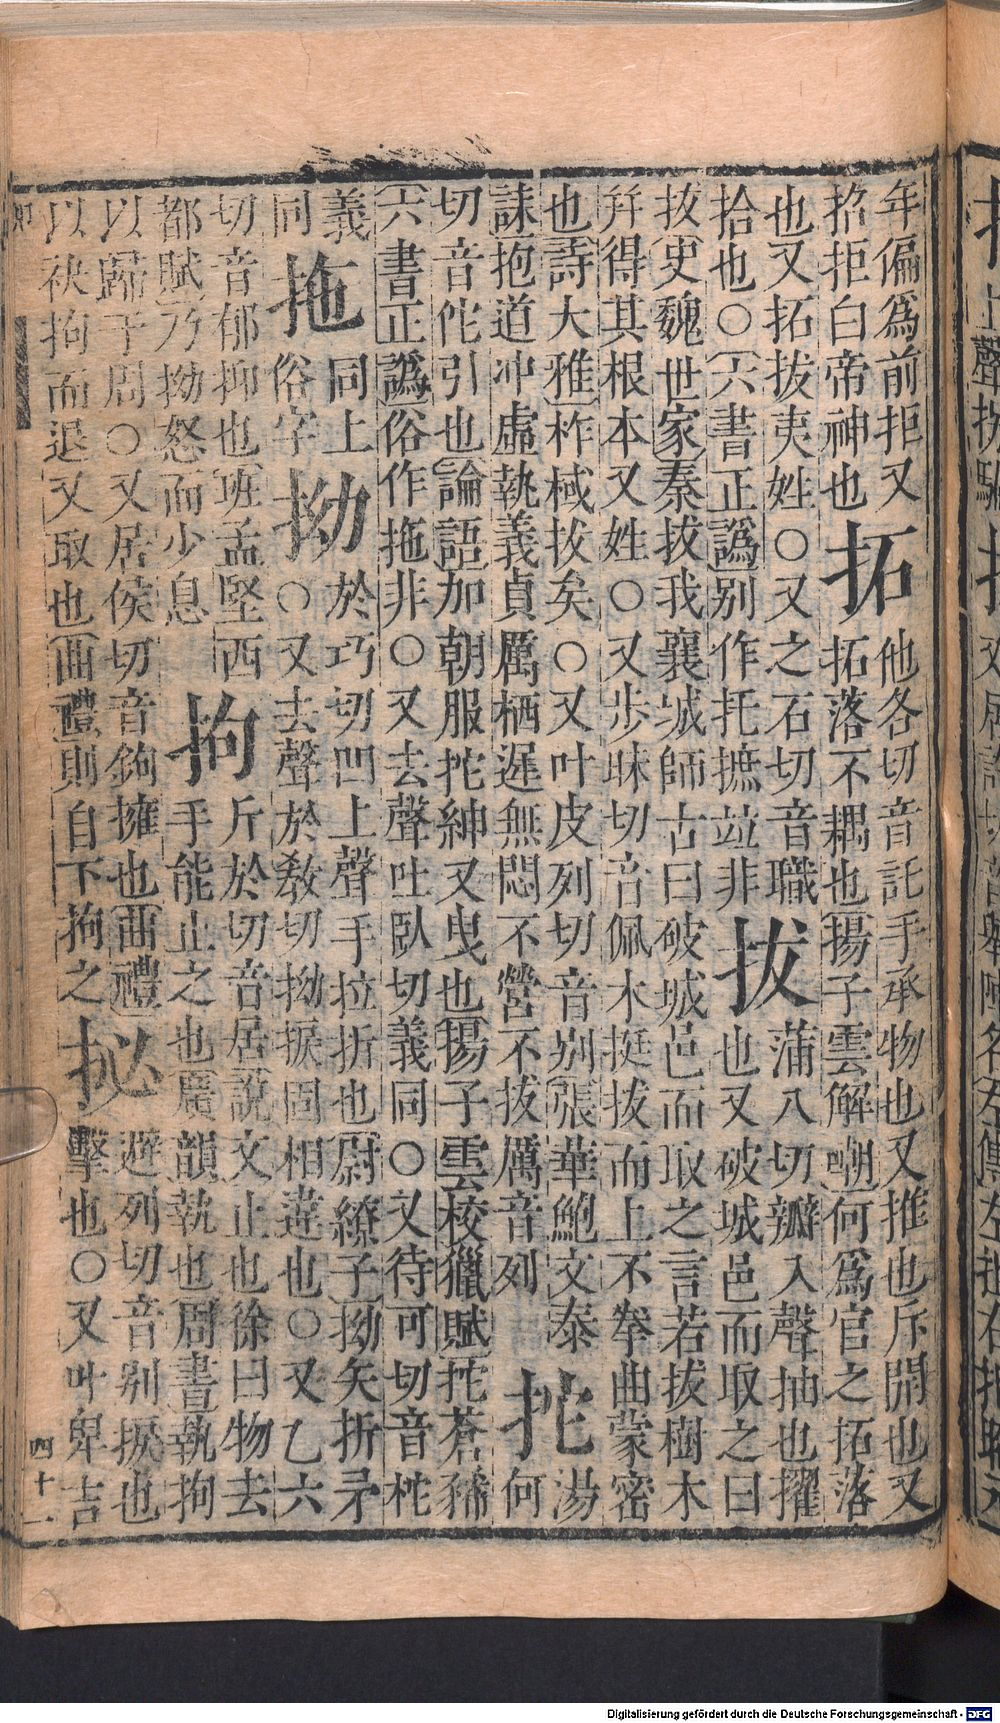 年偏爲前拒又
招拒白帝神也
拓
他各切音託手承物也又推也斥開也又
拓落不耦也揚子雲解嘲何爲官之拓落
也又拓拔夷姓〇又之石切音職
拾也〇六書正譌别作托摭竝非
拔
蒲八切瓣入聲抽也擢
也又破城邑而取之曰
拔史魏世家秦拔我襄城師古曰破城邑而取之言若拔樹木
幷得其根本又姓〇又步昧切音佩木挺拔而上不拳曲蒙密
也詩大雅柞棫拔矣〇又叶皮列切音别張華鮑文泰
誄抱道冲虛執義貞厲栖遲無悶不營不拔厲音列
拕
湯
何
切音佗引也論語加朝服拕紳又曳也揚子雲校獵賦拕蒼豨
六書正譌俗作拖非〇又去聲吐臥切義同〇又待可切音柁
義
同
拖
同上
俗字
拗
於巧切凹上聲手拉折也尉繚子拗矢折矛
〇又去聲於敎切拗捩固相違也〇又乙六
切音郁抑也班孟堅西
都賦乃拗怒而少息
拘
斤於切音居說文止也徐曰物去
手能止之也廣韻執也周書執拘
以歸于周〇又居侯切音鉤擁也曲禮
以袂拘而退又取也曲禮則自下拘之
㧙
避列切音别捩也
擊也〇又叶卑吉
四十一
Digitalisierung gefördert durch die Deutsche Forschungsgemeinschaft - DFG